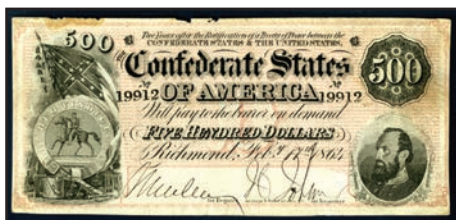 Two Years after the Ratification of a Treaty of Peace between the
CONFEDERATE STATES & THE UNITED STATES,
500
Confederate States
500
No 19912 OF AMERICA No 19912
Will pay to the bearer on demand
FIVE HUNDRED DOLLARS
Richmond, Feb.y 17th 1864